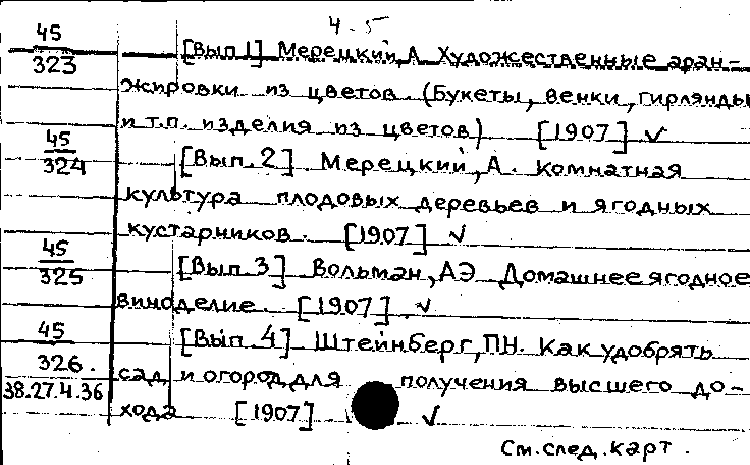 4.5
45 [Вып 1] Мерецкий, А Художественные аран-
323 жировки из цветов (Букеты, венки, гирлянды
и т.п. изделия из цветов) [1907] ✓
45 [Вып. 2] Мерецкий, А. Комнатная
324 культура плодовых деревьев и ягодных
кустарников. [1907] ✓
45 [Вып 3] Вольман, А.Э Домашнее ягодное
325 виноделие. [1907]. ✓
45 [Вып. 4] Штейнберг, П.Н. Как удобрять
326. сад и огород для получения высшего до-
38.27.4.36 хода [1907] ✓
См. след. карт.